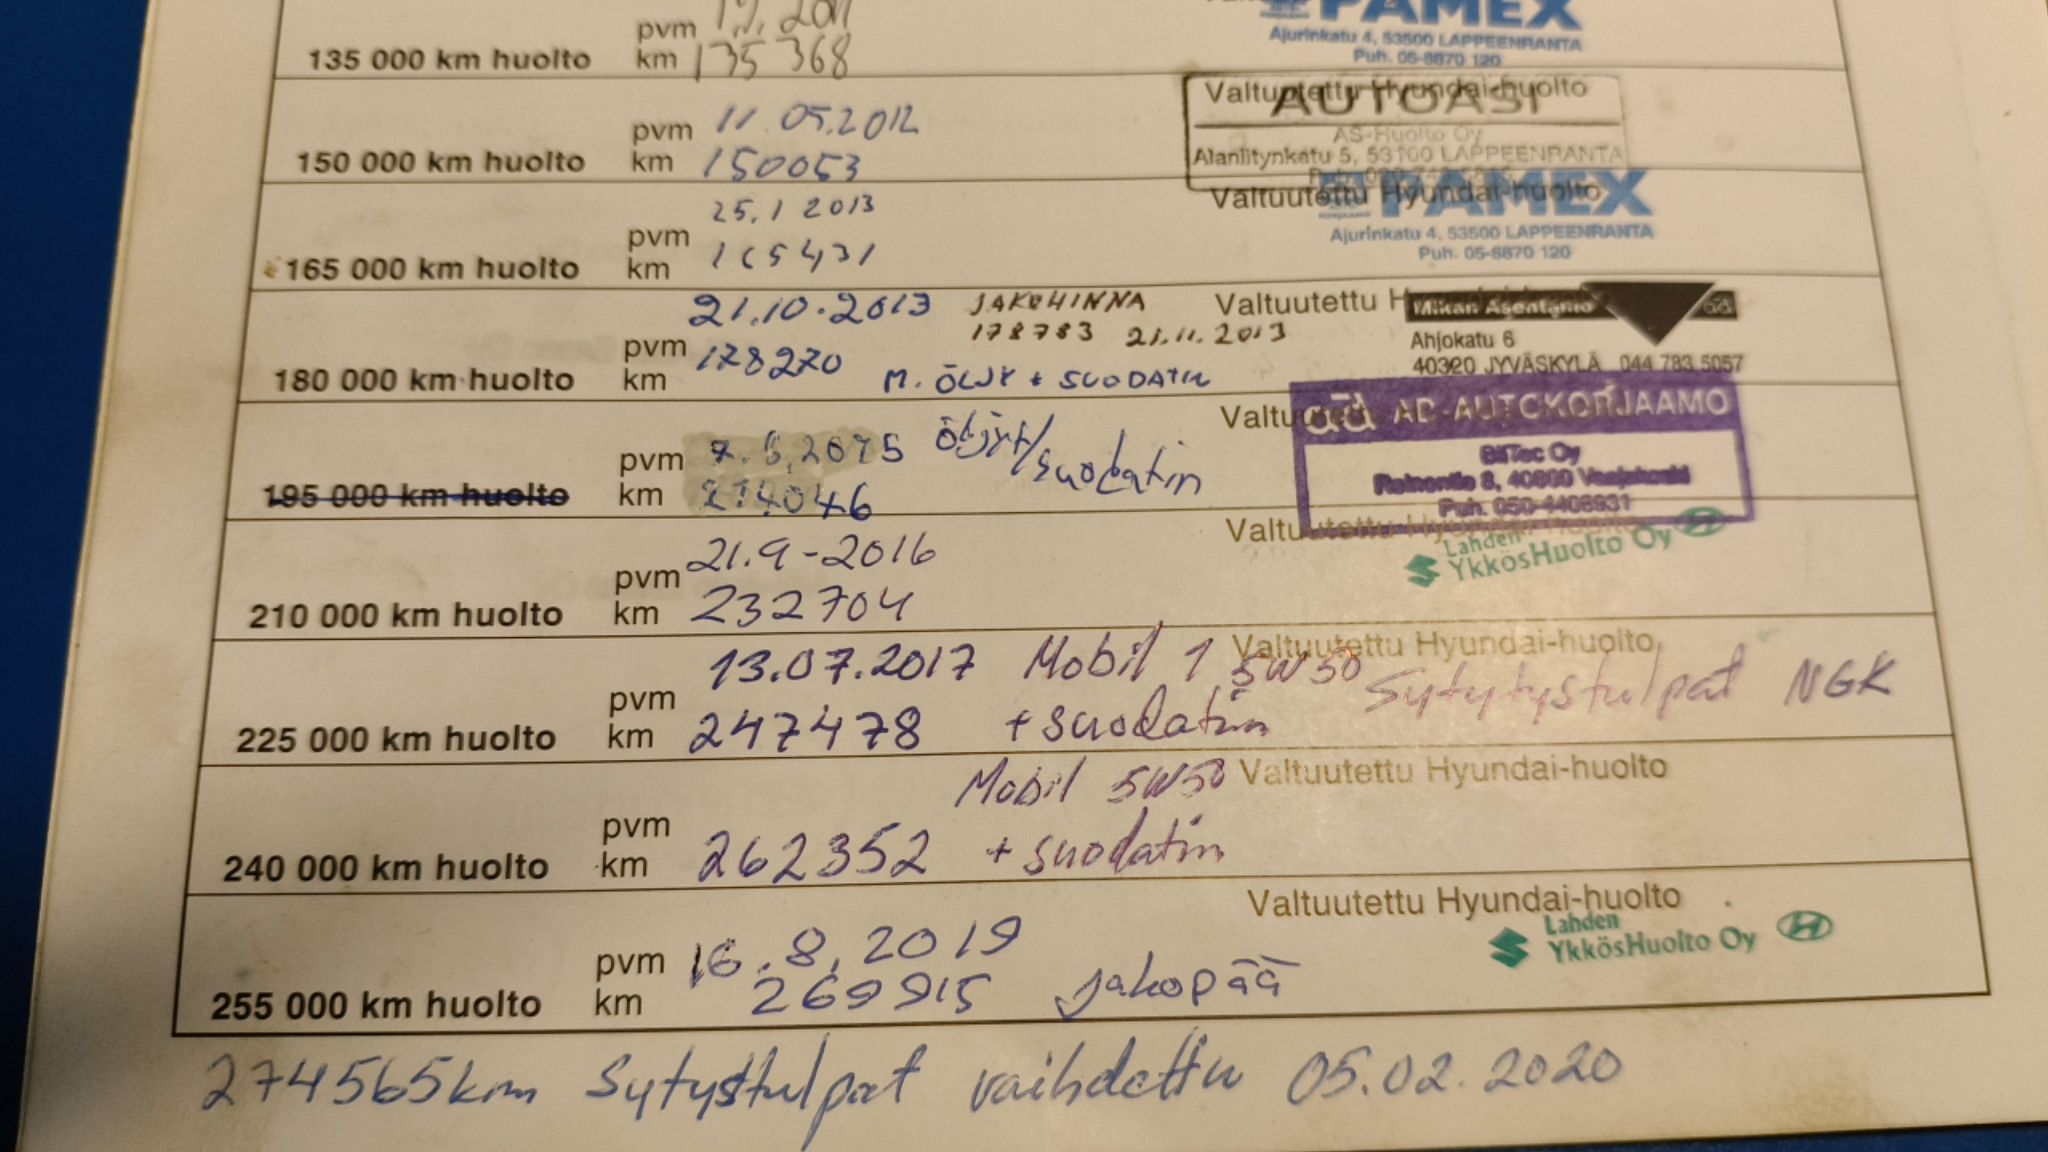 pvm
PAMEX
Ajurinkatu 4, 53500 LAPPEENRANTA
Puh. 05-8870 120
135 000 km huolto km 135 368
Valtuutettu Hyundai-huolto
AUTOASI
AS-Huolto Oy
53100 LAPPEENRANTA
pvm 11.05.2012
150 000 km huolto km 150053
Valtuutettu Hyundai-huolto
PAMEX
Ajurinkatu 4, 53500 LAPPEENRANTA
Puh. 05-8870 120
25.1 2013
pvm
165 000 km huolto km 165431
21.10.2013 JAKOHIHNA Valtuutettu
178783 21.11.2013
Mikan Asentamo ad
Ahjokatu 6
40320 JYVÄSKYLÄ 044 783 5057
pvm 178270
180 000 km huolto km M. ÖLJY + SUODATIN
Valtuutettu
ad AD-AUTOKORJAAMO
BilTec Oy
40800 Vaajakoski
Puh. 050-4406931
pvm 7.5.2015 Öljyt/suodatin
195 000 km huolto km 214046
Valtuutettu Hyundai-huolto
Lahden
YkkösHuolto Oy
21.9-2016
pvm
210 000 km huolto km 232704
Valtuutettu Hyundai-huolto
13.07.2017 Mobil 1 5W50 Sytytystulpat NGK
pvm
225 000 km huolto km 247478 + suodatin
Mobil 5W50 Valtuutettu Hyundai-huolto
pvm
240 000 km huolto km 262352 + suodatin
Valtuutettu Hyundai-huolto
Lahden
YkkösHuolto Oy
pvm 16.8.2019
255 000 km huolto km 269915 jakopää
274565km Sytystulpat vaihdettu 05.02.2020